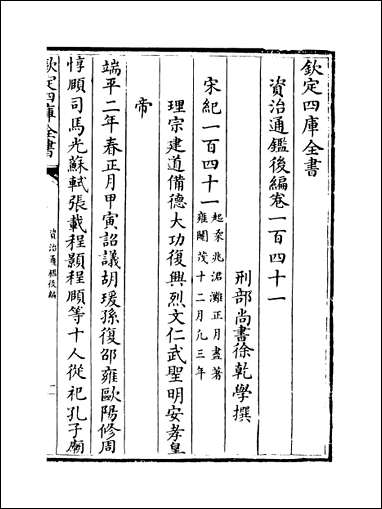 欽定四庫全書
資治通鑑後編卷一百四十一
刑部尚書徐乾學撰
宋紀一百四十一
起柔兆涒灘正月盡著
雍閹茂十二月凡三年
理宗建道備德大功復興烈文仁武聖明安孝皇
帝
端平二年春正月甲寅詔議胡瑗孫復邵雍歐陽修周
惇頤司馬光蘇軾張載程顥程頤等十人從祀孔子廟
欽定四庫全書
資治通鑑後編